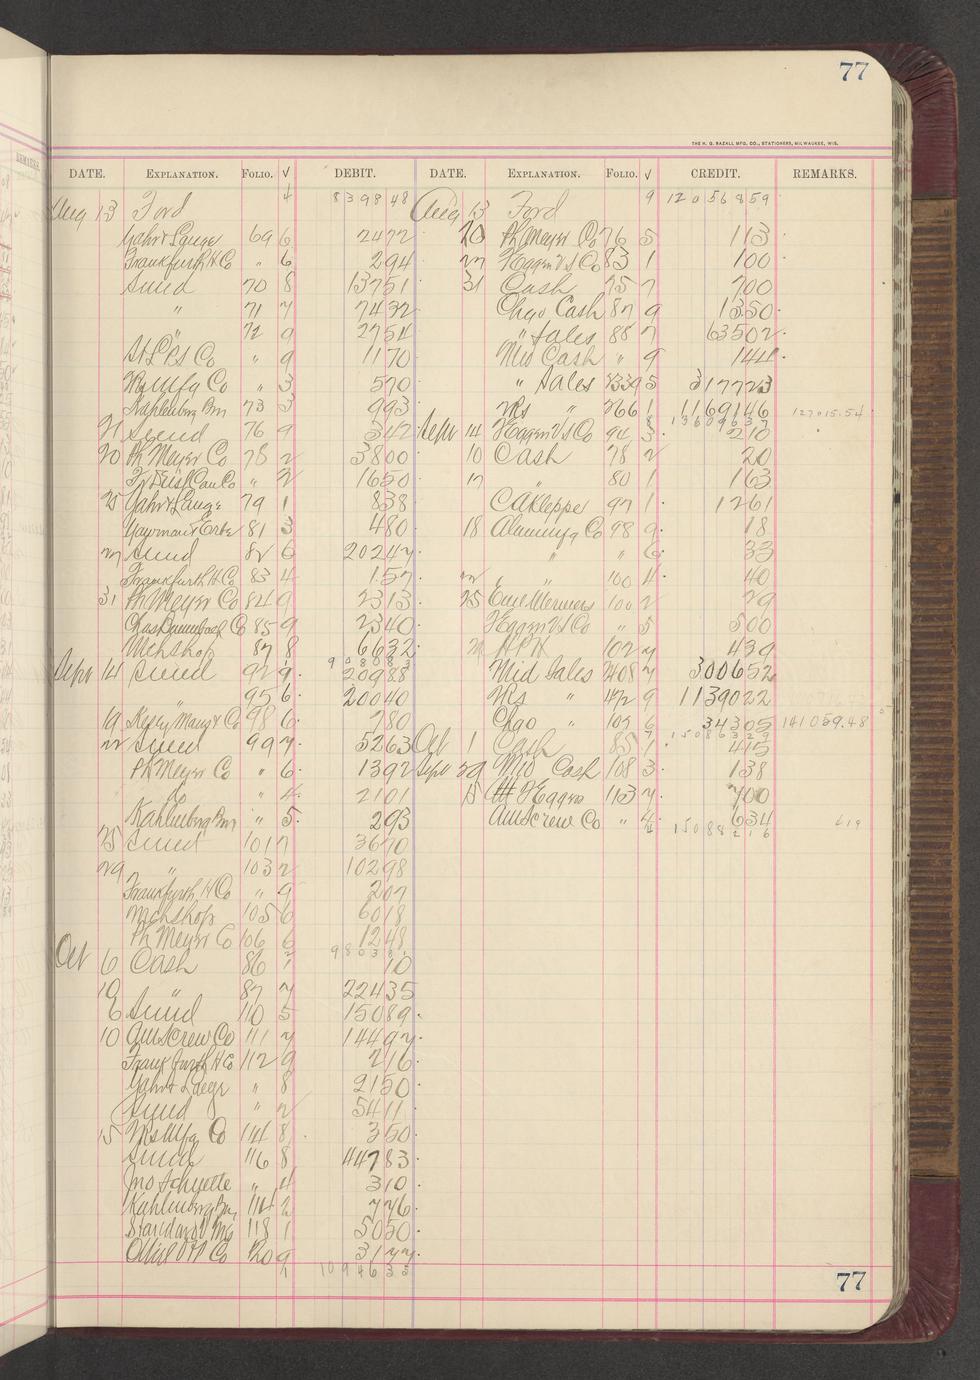 77
THE H. G. RAZALL MFG. CO., STATIONERS, MILWAUKEE, WIS.
DATE. EXPLANATION. FOLIO. √ DEBIT. DATE. EXPLANATION. FOLIO. √ CREDIT. REMARKS.
Aug 13 Ford 4 8398 48 Aug 13 Ford 9 12056859
Yahr & Lange 69 6 2472 20 Ph Meyer Co 76 5 113
Frankfurth H Co " 6 294 27 Heggen V S Co 83 1 100
Sund 70 8 13751 31 Cash 75 7 700
" 71 7 7432 Chgo Cash 87 9 1350
" 72 9 2754 " Sales 88 7 63502
St L P S Co " 9 1170 Mid Cash " 9 144
Mfg Co " 3 570 " Sales 395 317723
Kahlenberg Bros 73 3 993 " 766 1 1169146 127015.54
21 Sund 76 9 342 Sept 14 Heggen V S Co 94 3 210
20 Ph Meyer Co 78 2 3800 10 Cash 78 2 20
Can Co " 2 1650 17 " 80 1 163
25 Yahr & Lange 79 1 838 C A Kleppe 97 1 1261
81 3 480 18 Co 98 9 18
27 Sund 82 6 20247 " " 6 33
Frankfurth H Co 83 4 157 22 " 100 4 40
31 Ph Meyer Co 84 9 2313 25 100 2 29
Co 85 9 2340 Heggen V S Co " 5 500
Mchshop 87 8 6632 102 7 439
Sept 14 Sund 92 9 20988 Mid Sales 408 7 300652
95 6 20040 " 472 9 1139022
19 Co 98 6 280 Chgo " 107 6 34305 141059.48
22 Sund 99 7 5263 Oct 1 Cash 85 1 415
Ph Meyer Co " 6 1392 Sept 29 Mid Cash 108 3 138
Do " 4 2101 15 Heggen 113 7 700
Kahlenberg Bros " 5 293 Am Screw Co " 4 634
25 Sund 101 7 3670 15088216
29 " 103 2 10298
Frankfurth H Co " 9 207
Mchshop 105 6 6018
Ph Meyer Co 106 6 1248
Oct 6 Cash 86 10
10 " 87 7 22435
6 Sund 110 5 15089
10 Am Screw Co 111 7 14497
Frankfurth H Co 112 9 216
Yahr & Lange " 8 2150
Sund " 2 5411
15 Mfg Co 114 8 350
Sund 116 8 44783
Jno Schuette " 4 310
Kahlenberg Bros 114 2 776
Standard Mfg 118 1 5050
Co 120 9 3177
1094633
77